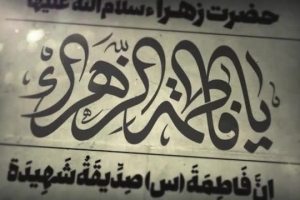 حضرت زهراء سلام الله علیها
یا فاطمة الزهراء
اِنَّ فَاطِمَةَ (س) صِدِّیقَةُ شَهِیدَة